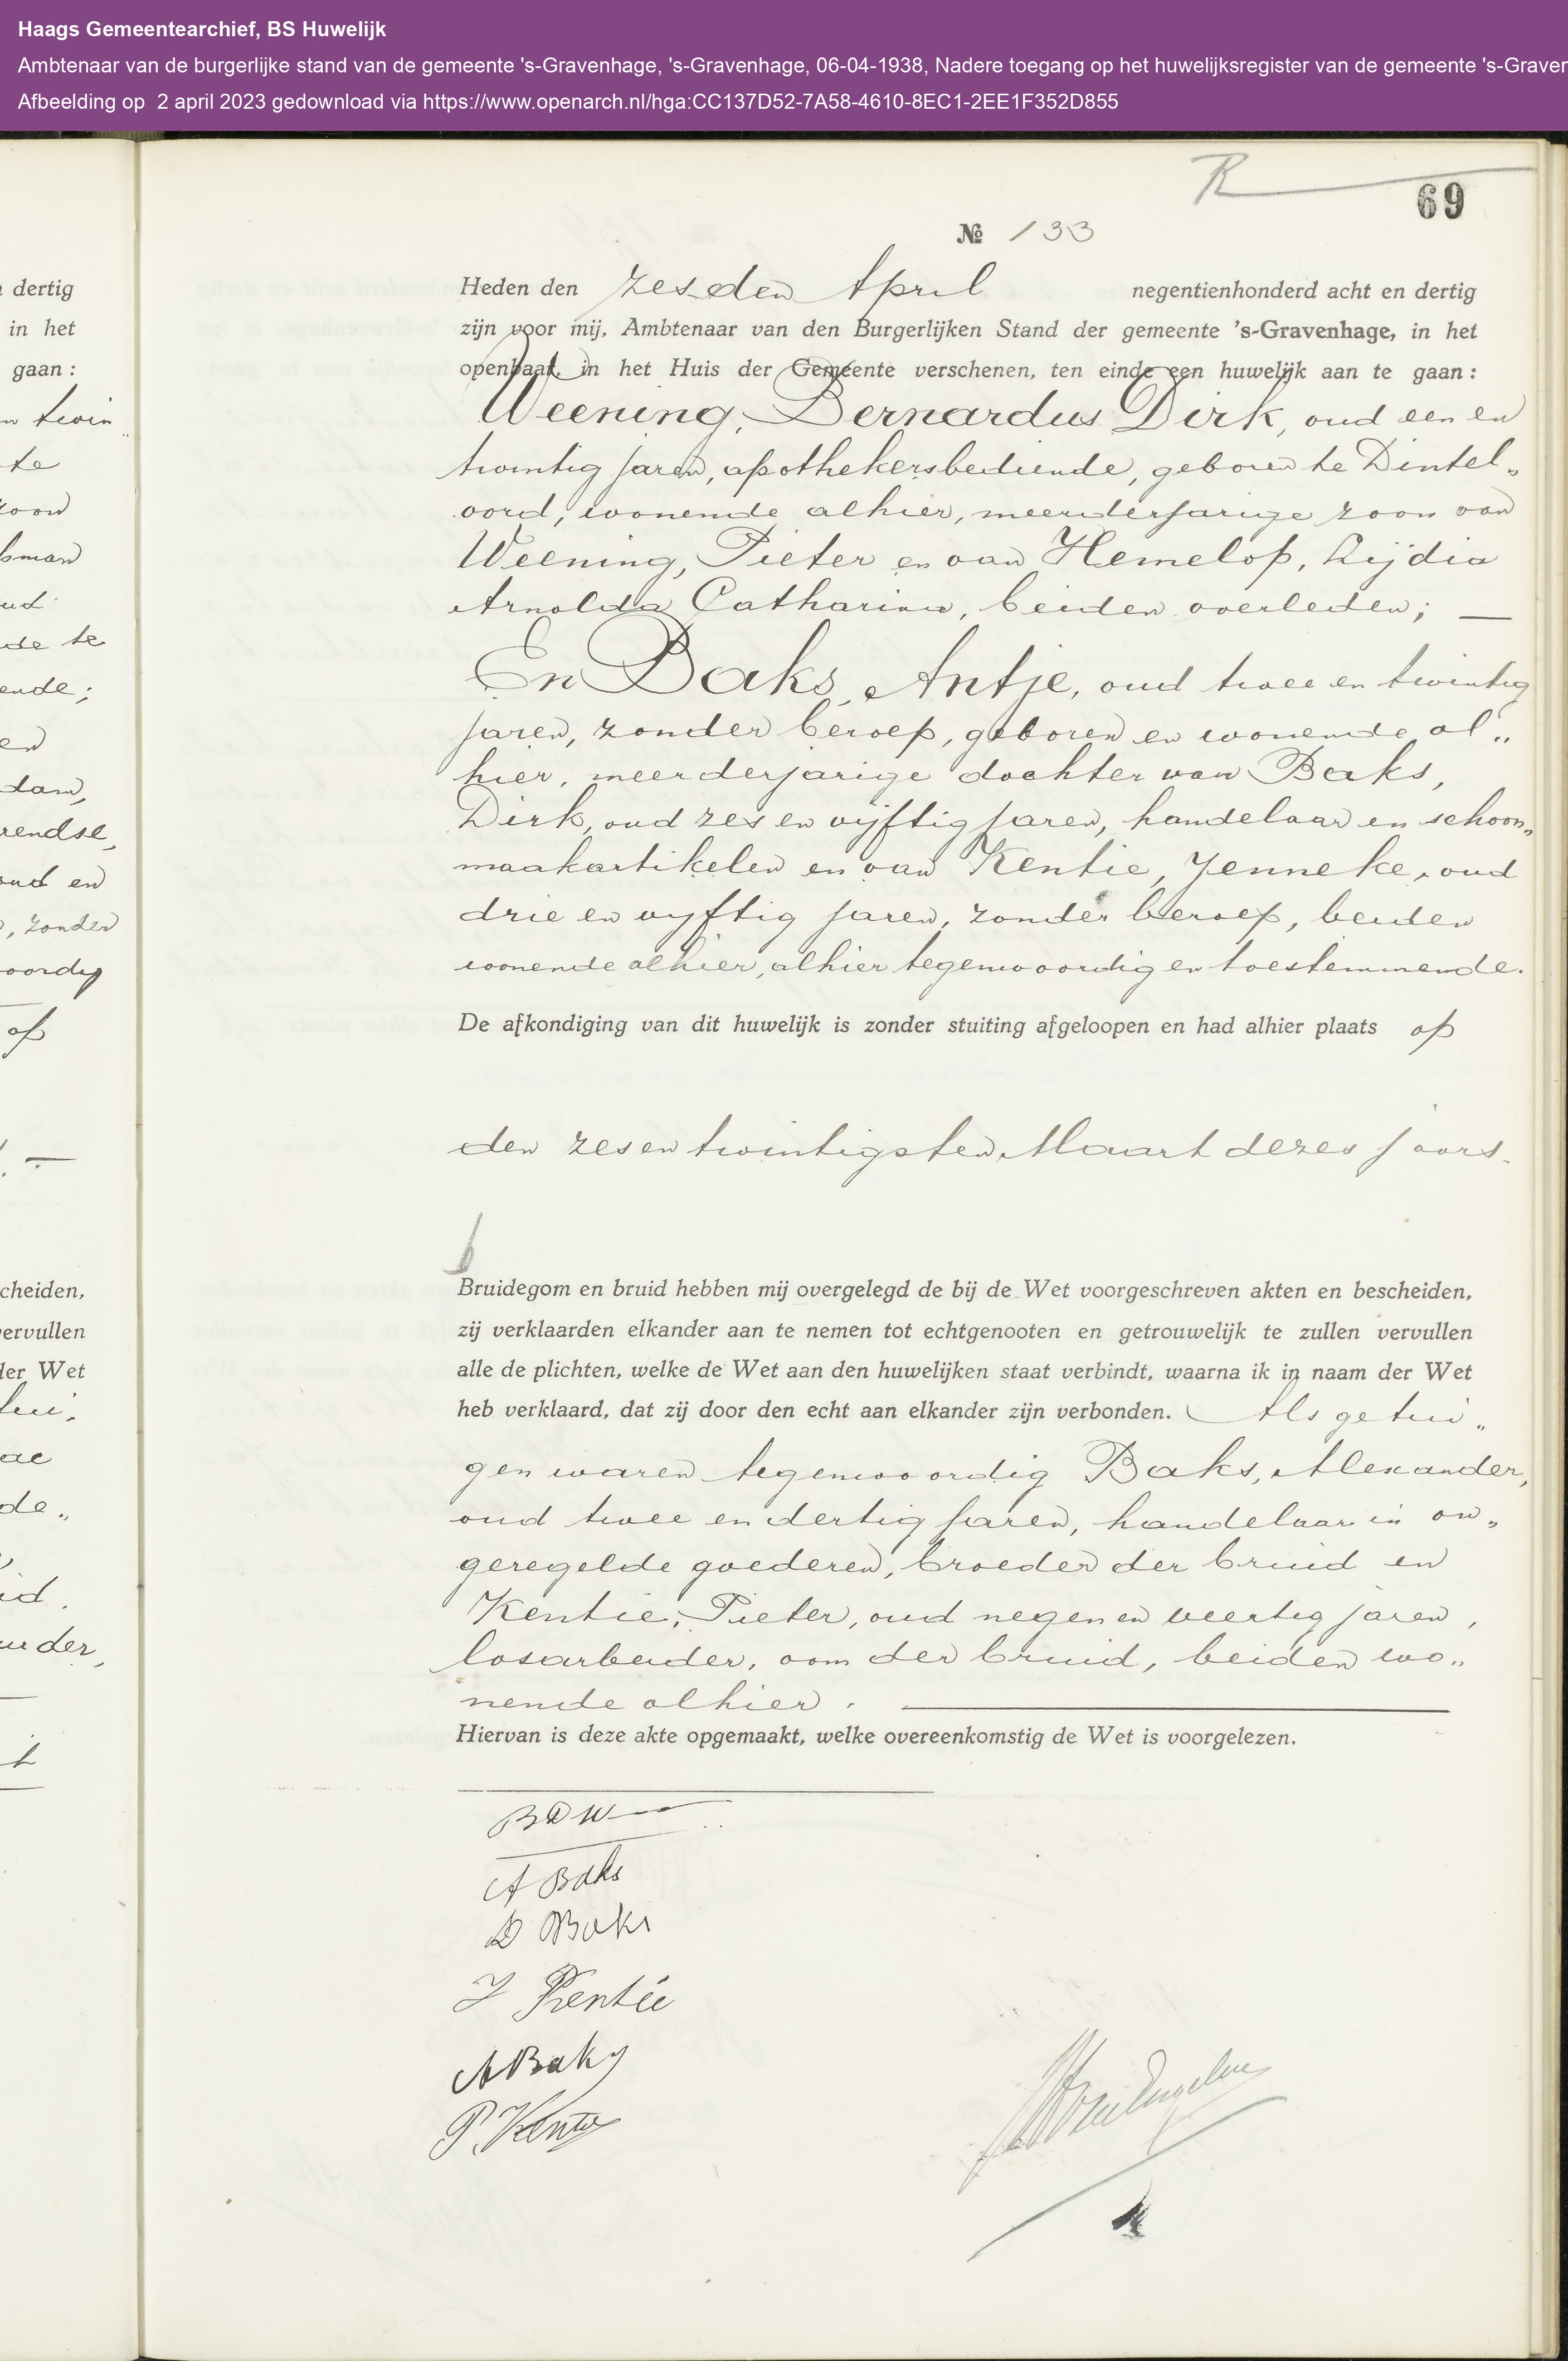 Haags Gemeentearchief, BS Huwelijk
Ambtenaar van de burgerlijke stand van de gemeente 's-Gravenhage, 's-Gravenhage, 06-04-1938, Nadere toegang op het huwelijksregister van de gemeente 's-Graven
Afbeelding op 2 april 2023 gedownload via https://www.openarch.nl/hga:CC137D52-7A58-4610-8EC1-2EE1F352D855
R
69
№ 133
Heden den zesden April negentienhonderd acht en dertig
zijn voor mij, Ambtenaar van den Burgerlijken Stand der gemeente 's-Gravenhage, in het
openbaar, in het Huis der Gemeente verschenen, ten einde een huwelijk aan te gaan:
Weening, Bernardus Dirk, oud een en
twintig jaren, apothekersbediende, geboren te Dintel„
oord, wonende alhier, meerderjarige zoon van
Weening, Pieter en van Hemelop, Lijdia
Arnolda Catharina, beiden overleden; —
En Baks, Antje, oud twee en twintig
jaren, zonder beroep, geboren en wonende al„
hier, meerderjarige dochter van Baks,
Dirk, oud zes en vijftig jaren, handelaar en schoon„
maakartikelen en van Kentie, Jenneke, oud
drie en vijftig jaren, zonder beroep, beiden
wonende alhier, alhier tegenwoordig en toestemmende.
De afkondiging van dit huwelijk is zonder stuiting afgeloopen en had alhier plaats op
den zesentwintigsten Maart dezes jaars.
Bruidegom en bruid hebben mij overgelegd de bij de Wet voorgeschreven akten en bescheiden,
zij verklaarden elkander aan te nemen tot echtgenooten en getrouwelijk te zullen vervullen
alle de plichten, welke de Wet aan den huwelijken staat verbindt, waarna ik in naam der Wet
heb verklaard, dat zij door den echt aan elkander zijn verbonden. Als getui„
gen waren tegenwoordig Baks, Alexander,
oud twee en dertig jaren, handelaar in on„
geregelde goederen, broeder der bruid en
Kentie, Pieter, oud negen en veertig jaren,
losarbeider, oom der bruid, beiden wo„
nende alhier.
Hiervan is deze akte opgemaakt, welke overeenkomstig de Wet is voorgelezen.
B D W
A Baks
D Baks
J Kentie
A Baks
P. Kentie